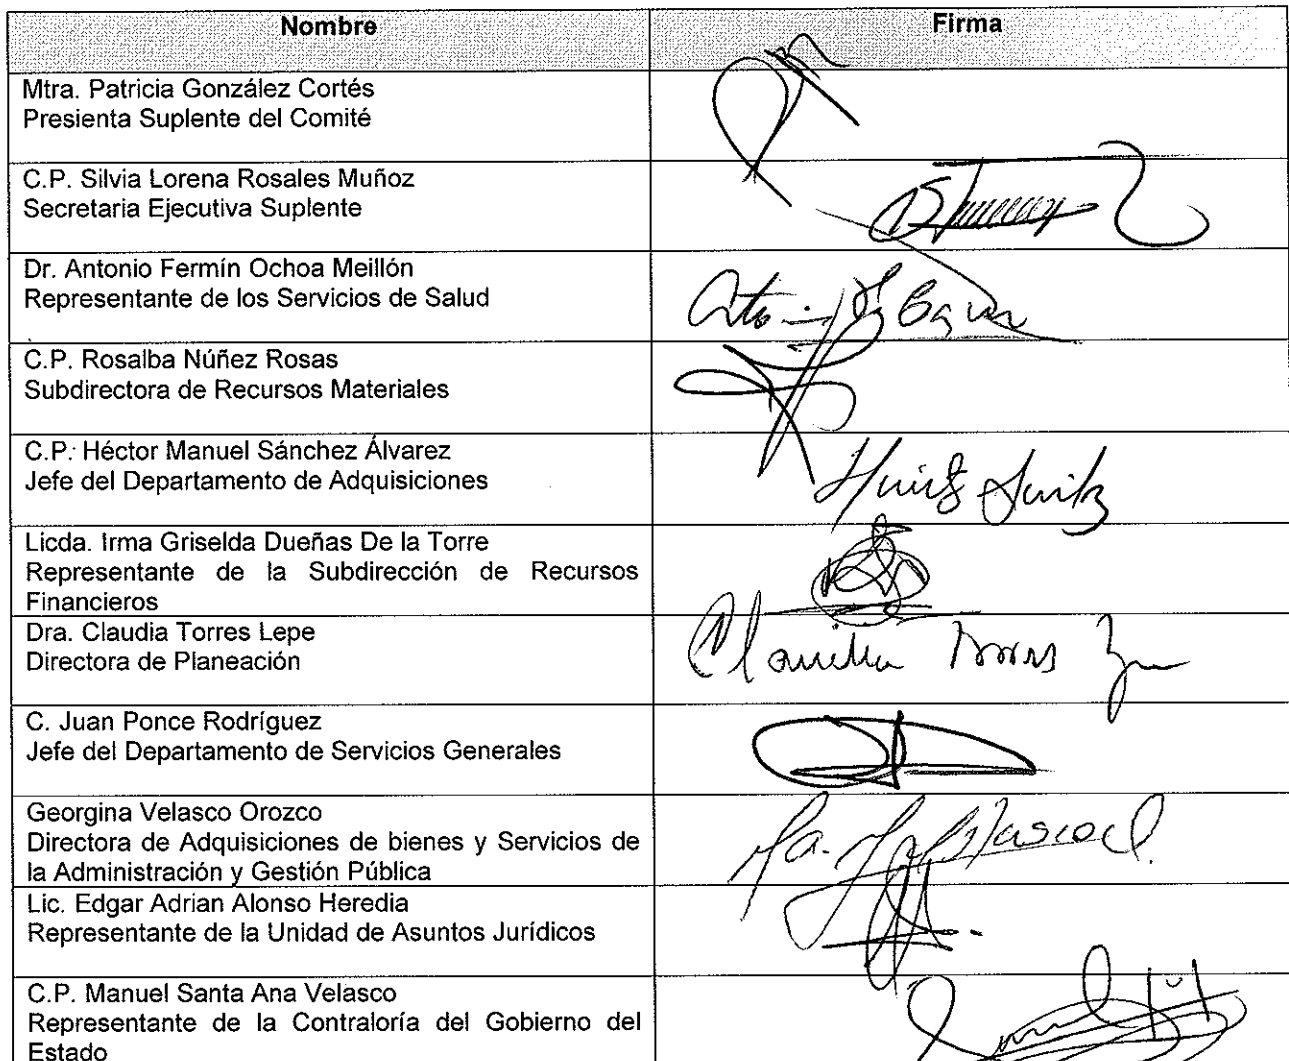 Nombre Firma
Mtra. Patricia González Cortés
Presienta Suplente del Comité
C.P. Silvia Lorena Rosales Muñoz
Secretaria Ejecutiva Suplente
Dr. Antonio Fermín Ochoa Meillón
Representante de los Servicios de Salud
C.P. Rosalba Núñez Rosas
Subdirectora de Recursos Materiales
C.P. Héctor Manuel Sánchez Álvarez
Jefe del Departamento de Adquisiciones
Licda. Irma Griselda Dueñas De la Torre
Representante de la Subdirección de Recursos
Financieros
Dra. Claudia Torres Lepe
Directora de Planeación
C. Juan Ponce Rodríguez
Jefe del Departamento de Servicios Generales
Georgina Velasco Orozco
Directora de Adquisiciones de bienes y Servicios de
la Administración y Gestión Pública
Lic. Edgar Adrian Alonso Heredia
Representante de la Unidad de Asuntos Jurídicos
C.P. Manuel Santa Ana Velasco
Representante de la Contraloría del Gobierno del
Estado